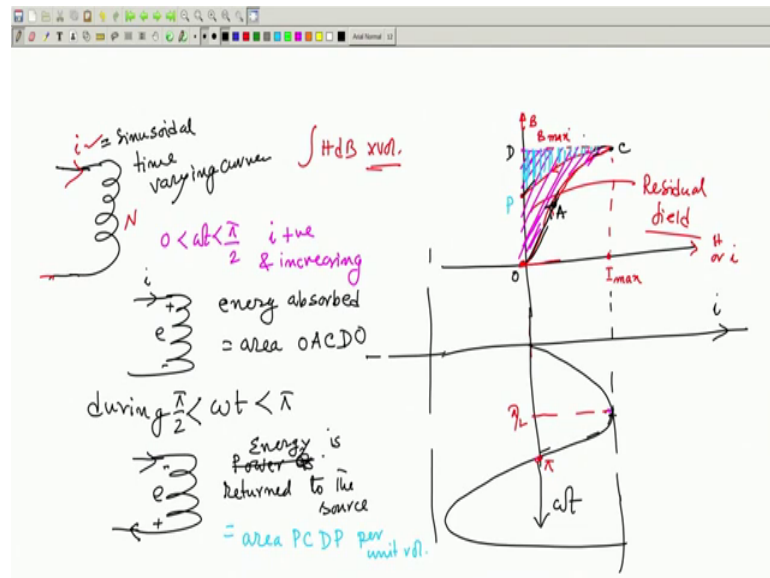 Arial Normal 12
i = sinusoidal
time
varying current
N
∫ H dB x vol.
0 < ωt < π/2 i +ve
& increasing
i
+
e
-
energy absorbed
= area OACDO
during π/2 < ωt < π
-
e
+
Energy is
Power is
returned to the
source
= area PCDP per
unit vol.
B
Bmax
D
C
P
A
Residual
field
O
Imax
H
or i
i
π/2
π
ωt